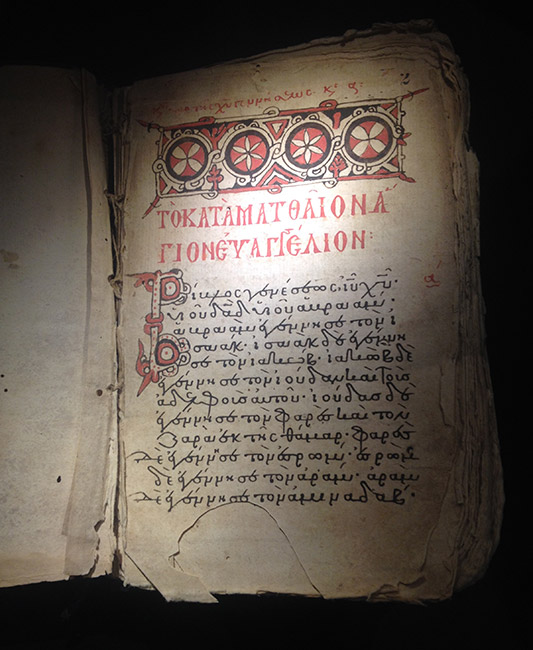 τῆς χῦ γεννήσεως· κε α·
ΤῸ ΚΑΤᾺ ΜΑΤΘΑῖΟΝ Ἁ
ΓΙΟΝ ἘΥΑΓΓΈΛΙΟΝ:
α
Βίβλος γενέσεως, ἰῦ χῦ·
υἱοῦ δᾱδ υἱοῦ ἀβρααμ·
ἀβρααμ ἐγέννησε τὸν ἰ
σαακ· ἰσαακ δὲ ἐγέννη
σε τὸν ἰακωβ· ἰακωβ δὲ
ἐγέννησε τὸν ἰουδαν καὶ τοὺς
ἀδελφοὺς αὐτοῦ· ἰουδας δὲ
ἐγέννησε τὸν φαρὲς καὶ τὸν
ζαρὰ ἐκ τῆς θάμαρ· φαρὲς
δὲ ἐγέννησε τὸν ἐσρώμ· ἐσρὼμ
δὲ ἐγέννησε τὸν ἀράμ· ἀρὰμ
δὲ ἐγέννησε τὸν ἀμιναδάβ·